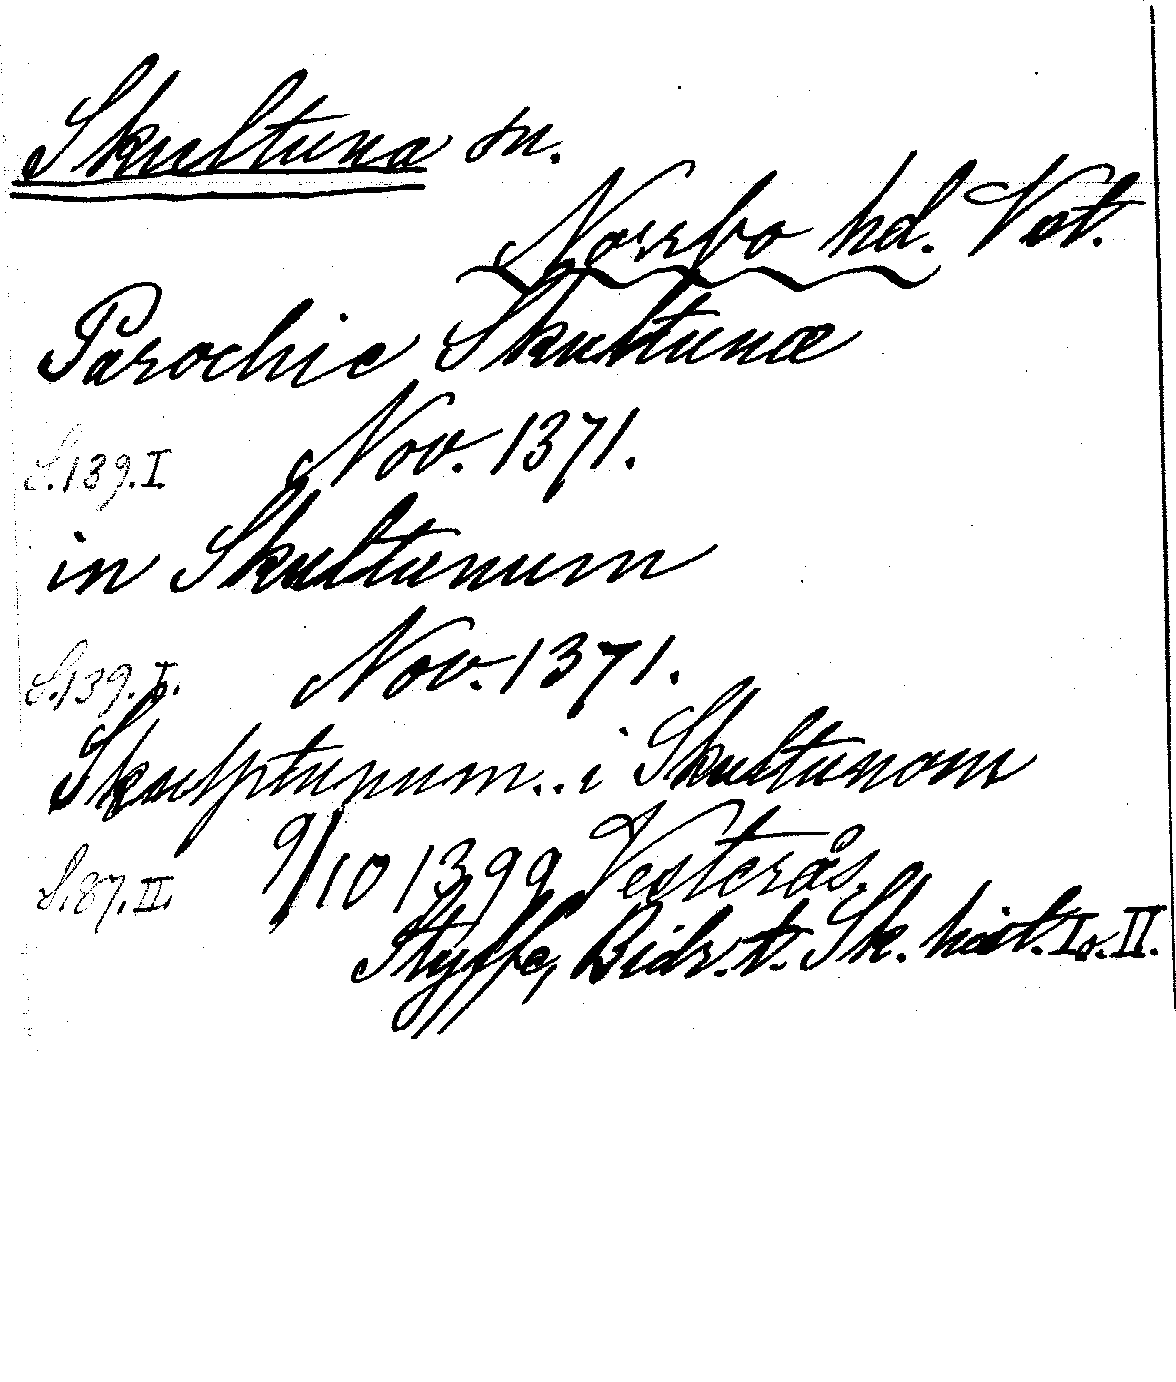 Skultuna sn.
Norrbo hd. Vst.
Parochie Skultunæ
S.139.I. Nov. 1371.
in Skultunum
S.139.I. Nov. 1371.
Skulptunum.. i Skultunom
S.87.II. 9/10 1399 Vesterås.
Styffe, Bidr. t. Sk. hist. I o. II.